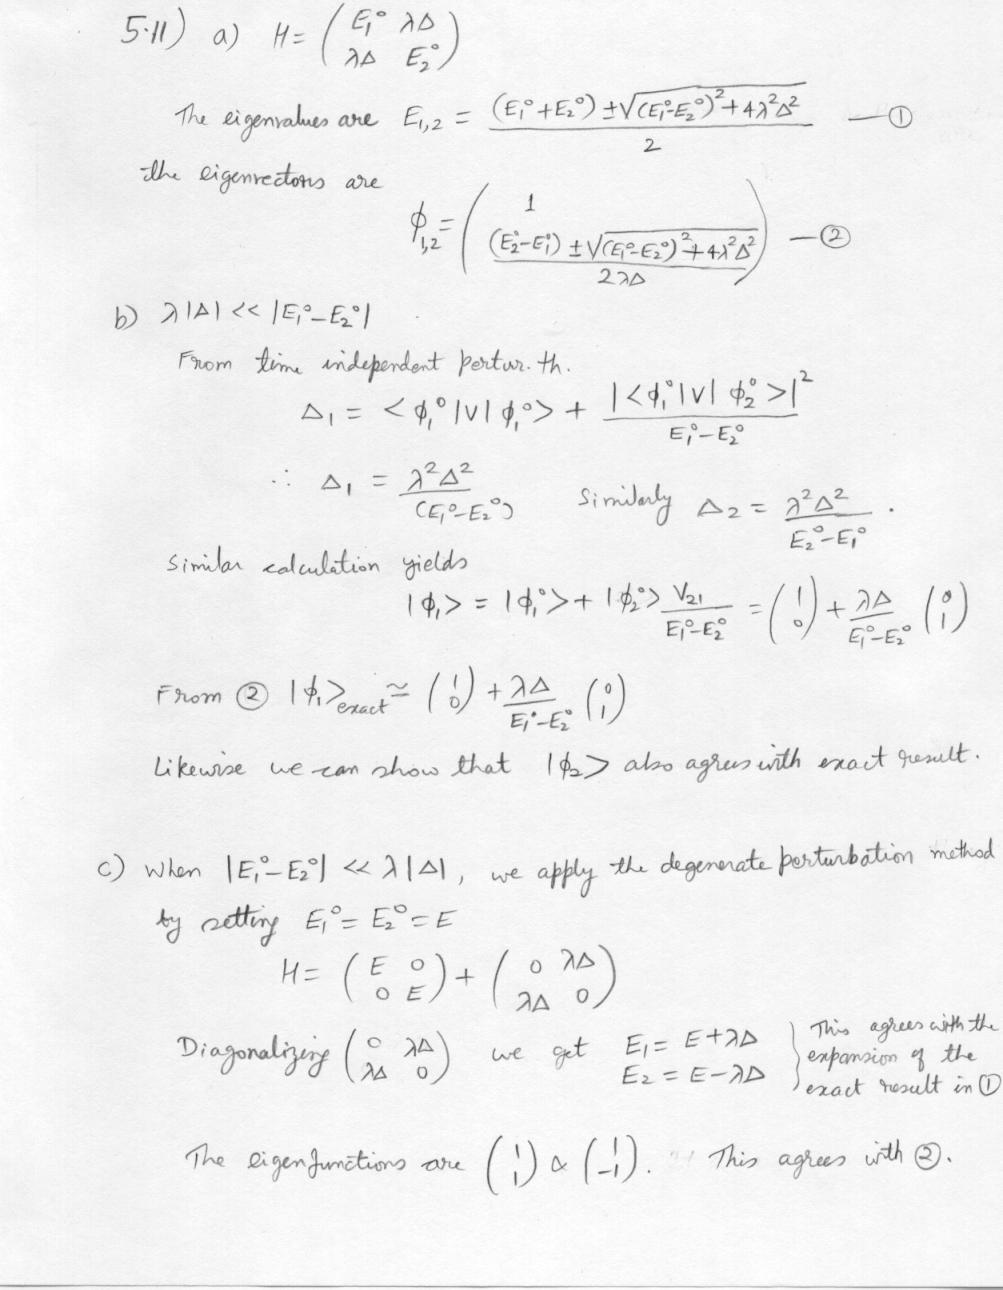 5.11) a) H = ( E₁° λΔ ; λΔ E₂° )
The eigenvalues are E₁,₂ = ((E₁°+E₂°) ± √((E₁°-E₂°)²+4λ²Δ²))/2 —①
the eigenvectors are
ϕ₁,₂ = ( 1 ; ((E₂°-E₁°) ± √((E₁°-E₂°)²+4λ²Δ²))/(2λΔ) ) —②
b) λ|Δ| << |E₁°-E₂°|
From time independent pertur. th.
Δ₁ = <ϕ₁°|V|ϕ₁°> + |<ϕ₁°|V|ϕ₂°>|²/(E₁°-E₂°)
∴ Δ₁ = λ²Δ²/(E₁°-E₂°) Similarly Δ₂ = λ²Δ²/(E₂°-E₁°).
Similar calculation yields
|ϕ₁> = |ϕ₁°> + |ϕ₂°> V₂₁/(E₁°-E₂°) = ( 1 ; 0 ) + λΔ/(E₁°-E₂°) ( 0 ; 1 )
From ② |ϕ₁>exact ≃ ( 1 ; 0 ) + λΔ/(E₁°-E₂°) ( 0 ; 1 )
Likewise we can show that |ϕ₂> also agrees with exact result.
c) When |E₁°-E₂°| << λ|Δ|, we apply the degenerate perturbation method
by setting E₁° = E₂° = E
H = ( E 0 ; 0 E ) + ( 0 λΔ ; λΔ 0 )
Diagonalizing ( 0 λΔ ; λΔ 0 ) we get E₁ = E+λΔ
E₂ = E-λΔ
} This agrees with the
expansion of the
exact result in ①
The eigenfunctions are ( 1 ; 1 ) & ( 1 ; -1 ). This agrees with ②.